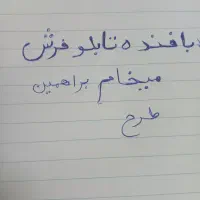 بافنده تابلو فرش
میخام برا همین
طرح